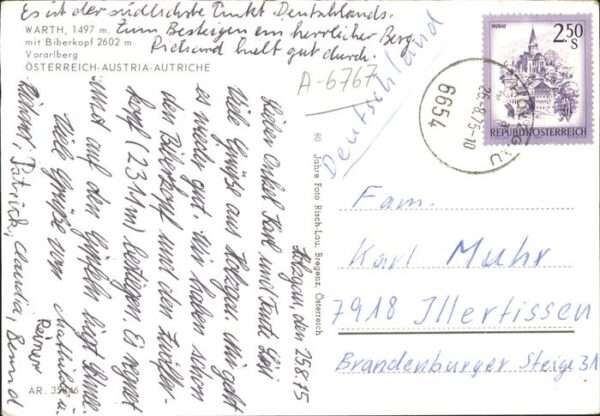 Es ist der südlichste Punkt Deutschlands.
Zum Besteigen ein herrlicher Berg.
Richard hielt gut durch.
WARTH, 1497 m.
mit Biberkopf 2602 m
Vorarlberg
ÖSTERREICH-AUSTRIA-AUTRICHE
A-6767
Deutschland
2.50
S
REPUBLIK ÖSTERREICH
6654
Holzgau, den 25.8.75
Lieber Onkel Karl und Tante
Viele Grüße aus Holzgau. Uns geht
es wieder gut. Wir haben schon
den Biberkopf und den
kopf (2311m) bestiegen. Es regnet
auf den Gipfeln liegt Schnee
Viele Grüße von Mathilde u.
Rainer
Richard, Patrick, Claudia, Bernd
80 Jahre Foto Risch-Lau, Bregenz, Österreich
Fam.
Karl Muhr
7918 Illertissen
Brandenburger Steige 31
AR.